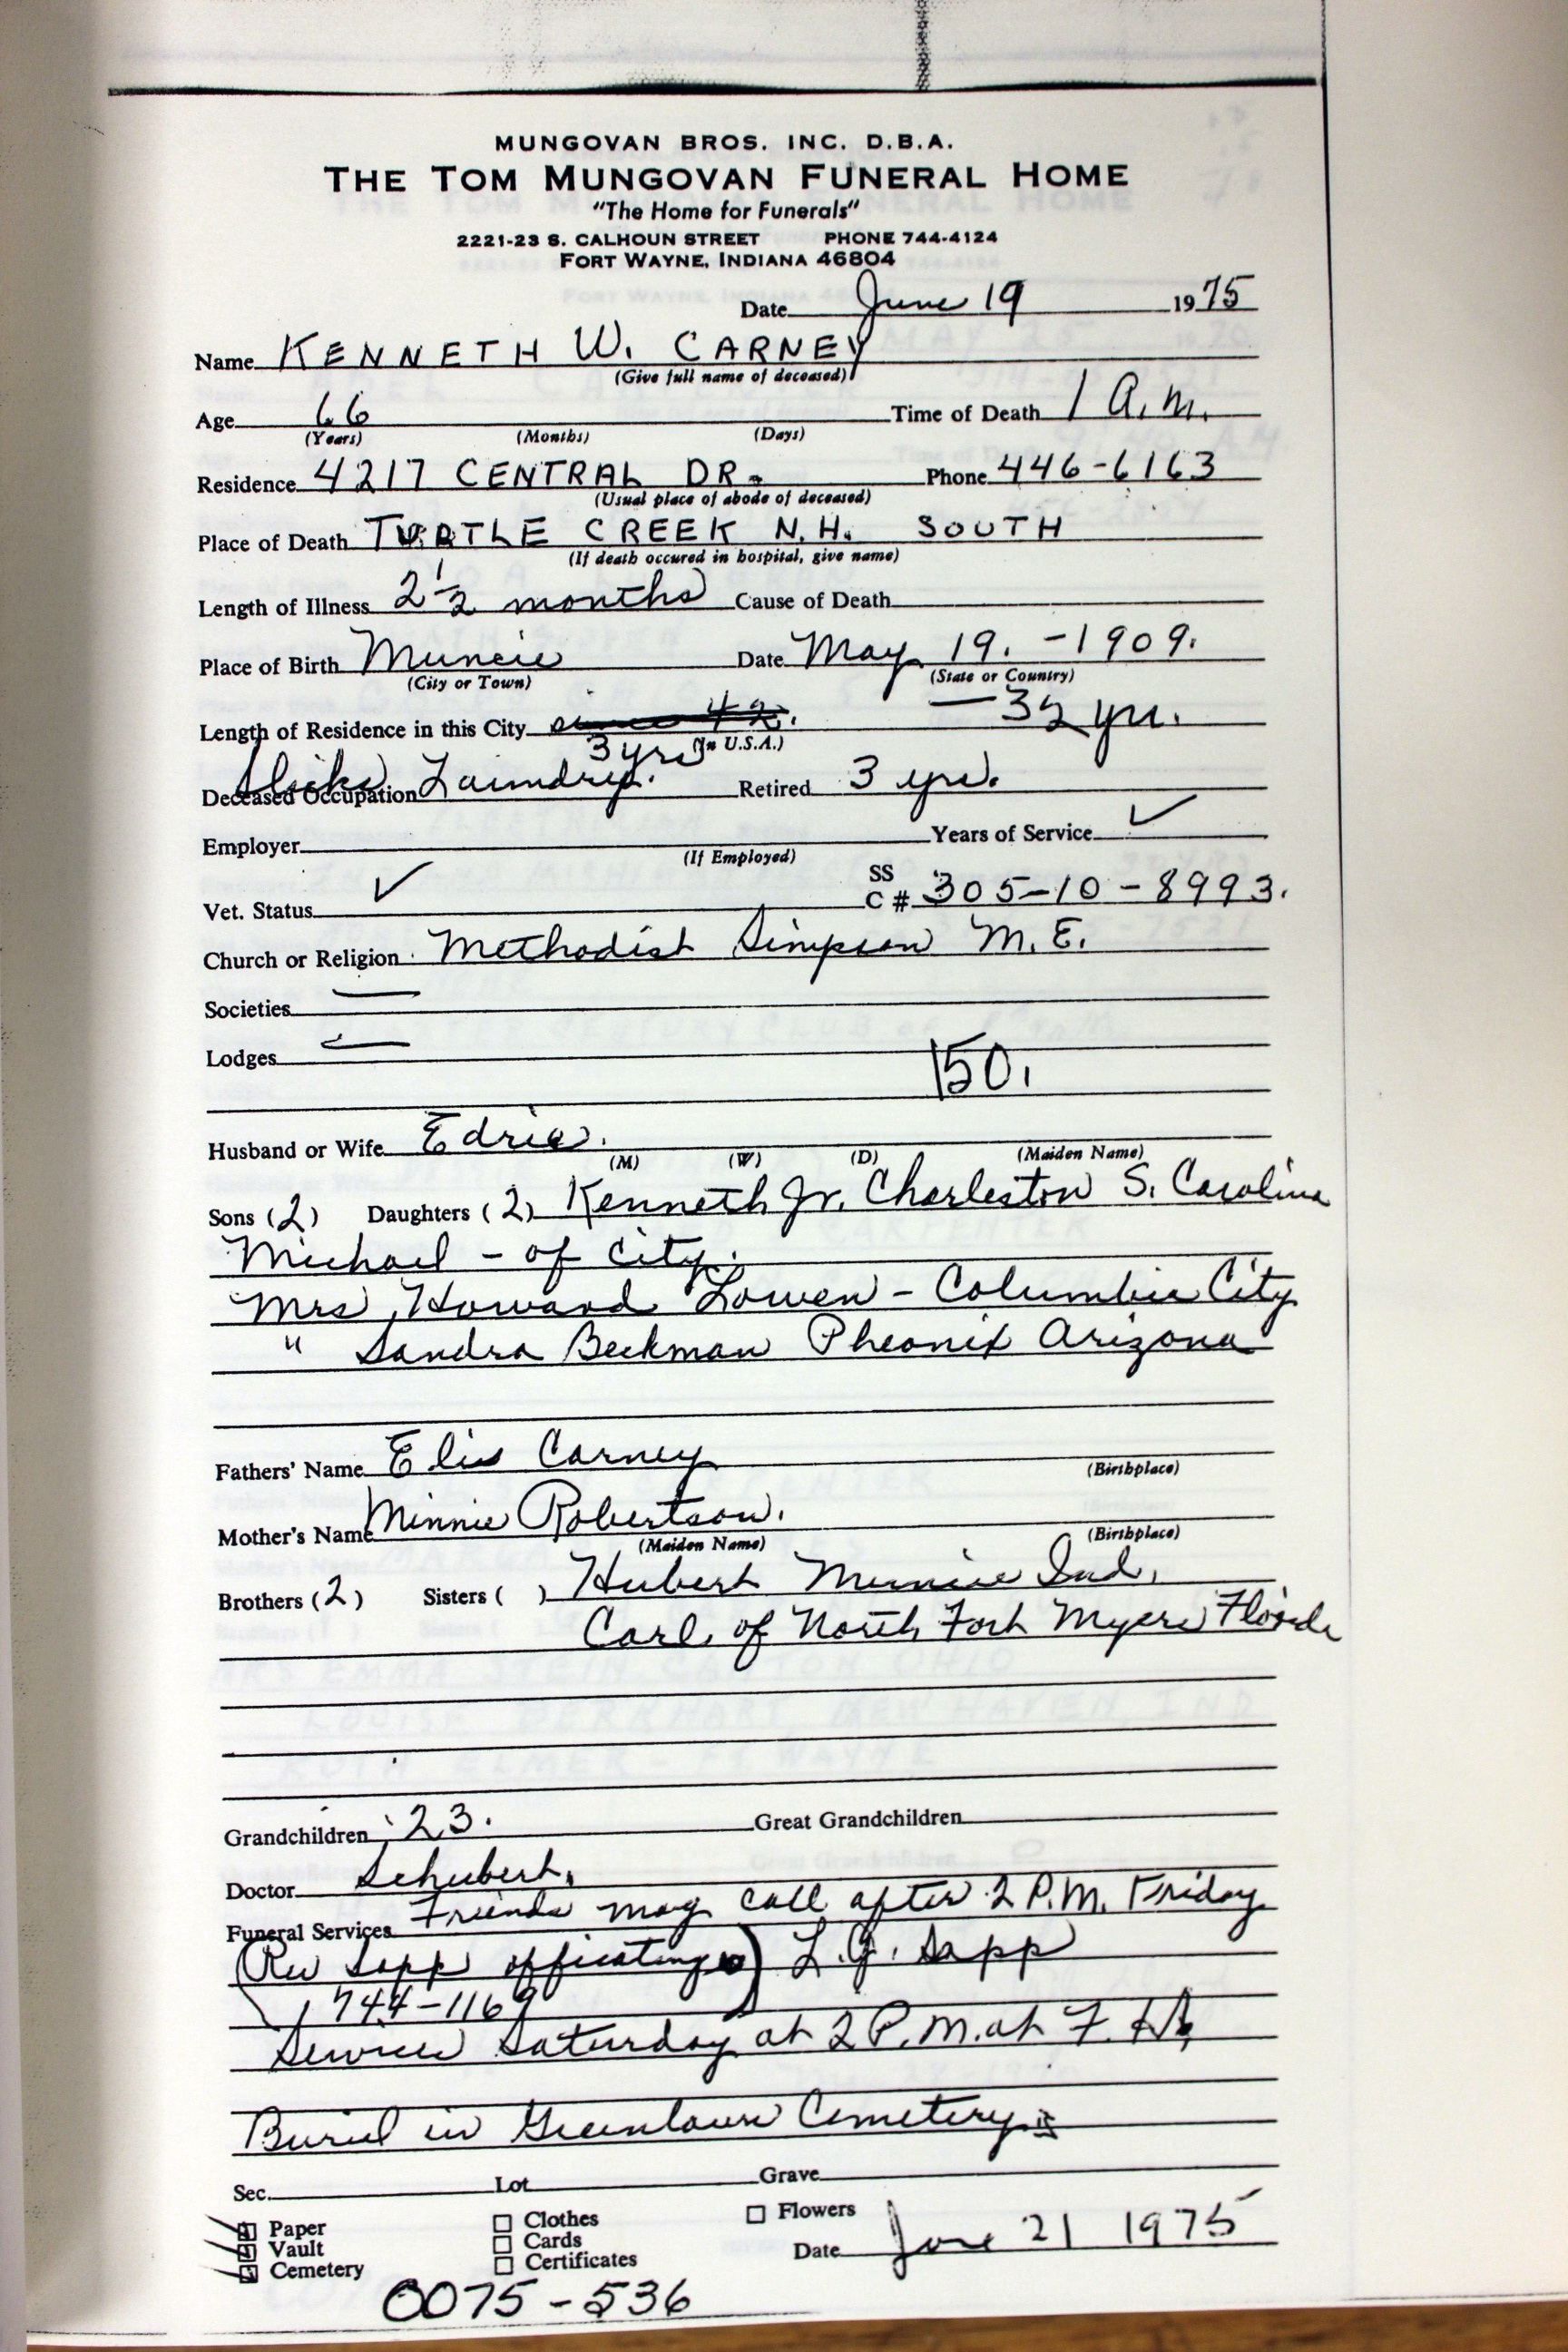 MUNGOVAN BROS. INC. D.B.A.
THE TOM MUNGOVAN FUNERAL HOME
"The Home for Funerals"
2221-23 S. CALHOUN STREET PHONE 744-4124
FORT WAYNE, INDIANA 46804
Date June 19 1975
Name KENNETH W. CARNEY
(Give full name of deceased)
Age 66 Time of Death 1 A.M.
(Years) (Months) (Days)
Residence 4217 CENTRAL DR. Phone 446-6163
(Usual place of abode of deceased)
Place of Death TURTLE CREEK N.H. SOUTH
(If death occured in hospital, give name)
Length of Illness 2 1/2 months Cause of Death
Place of Birth Muncie Date May 19. -1909.
(City or Town) (State or Country)
Length of Residence in this City since 42. - 35 yrs.
3 yrs (In U.S.A.)
Deceased Occupation Slicks Laundry. Retired 3 yrs.
Employer Years of Service ✓
(If Employed)
Vet. Status ✓ SS C # 305-10-8993.
Church or Religion Methodist Simpson M.E.
Societies —
Lodges —
150.
Husband or Wife Edria.
(M) (W) (D) (Maiden Name)
Sons (2) Daughters (2) Kenneth Jr. Charleston S. Carolina
Michael - of City.
Mrs. Howard Lowen - Columbia City
" Sandra Beekman Pheonix Arizona
Fathers' Name Elis Carney
(Birthplace)
Mother's Name Minnie Robertson.
(Maiden Name) (Birthplace)
Brothers (2) Sisters ( ) Hubert Muncie Ind.
Carl of North Fort Myers Florida
Grandchildren 23. Great Grandchildren
Doctor Schubert.
Funeral Services Friends may call after 2 P.M. Friday
(Rev Sapp officating) L.G. Sapp
744-1169
Services Saturday at 2 P.M. at F.H.
Burial in Greenlawn Cemetery
Sec. Lot Grave
Paper Clothes Flowers
Vault Cards Date June 21 1975
Cemetery Certificates
0075-536